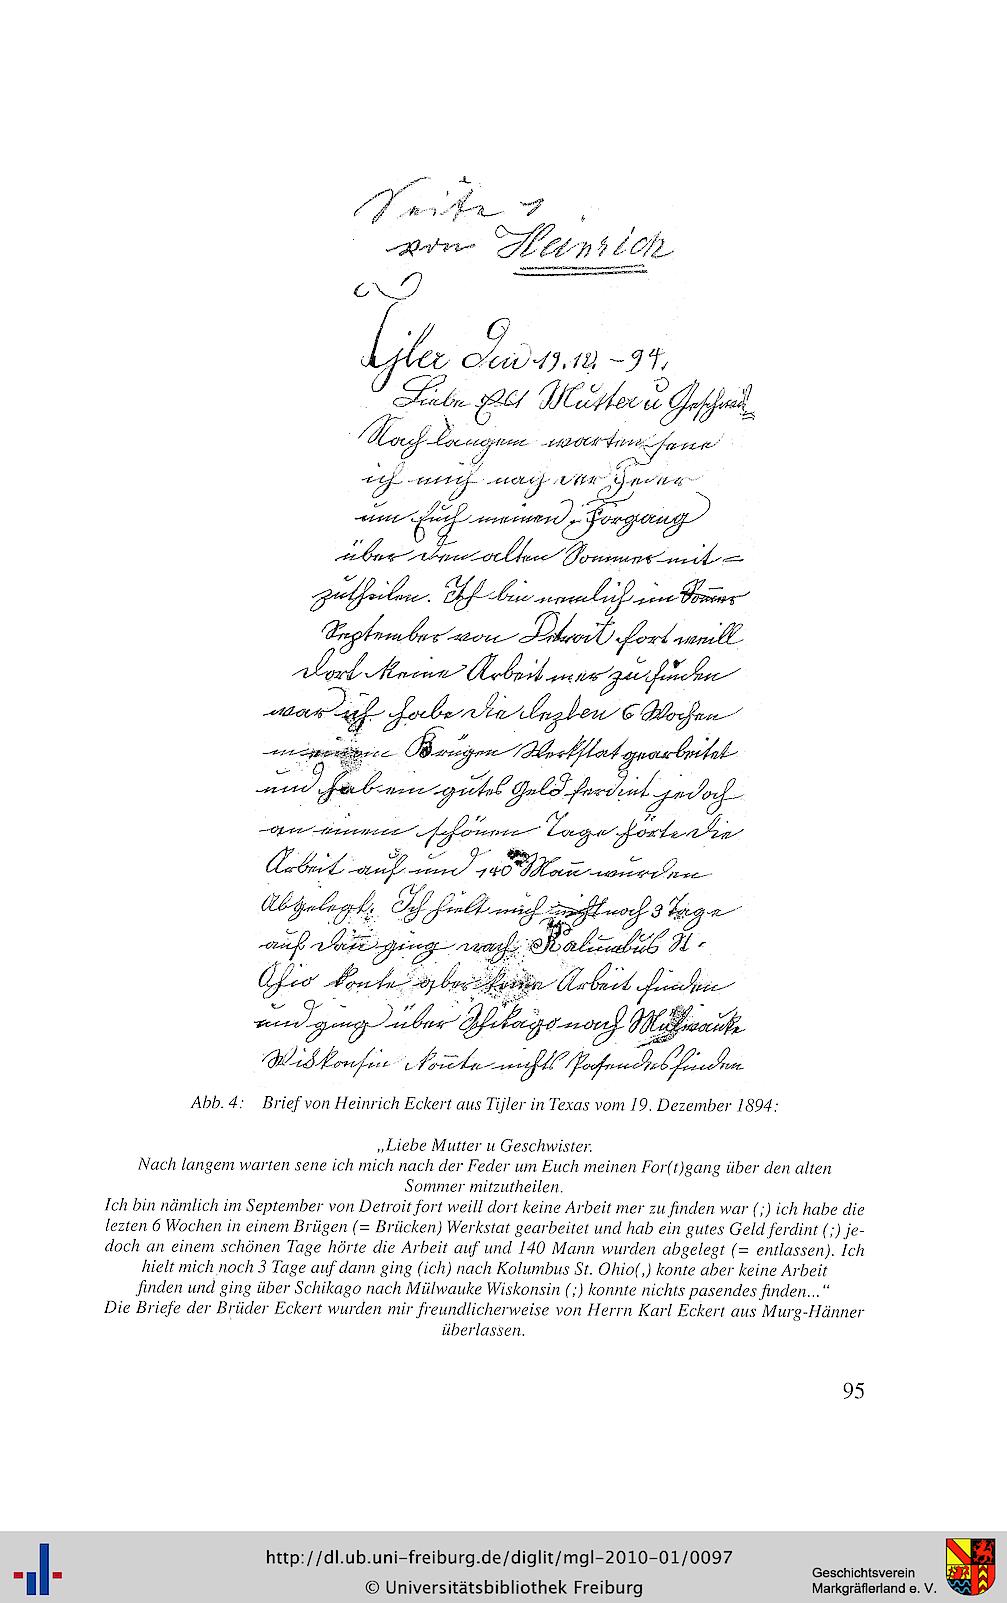 Seite 1
von Heinrich
Tijler Den 19.12. - 94.
Liebe Mutter u Geschwis
Nach langem warten sene
ich mich nach der Feder
um Euch meinen Forgang
über den alten Sommer mit=
zutheilen. Ich bin nemlich im Sommer
September von Detroit fort weill
dort keine Arbeit mer zu finden
war ich habe die lezten 6 Wochen
in einem Brügen Werkstat gearbeitet
und hab ein gutes Geld ferdint jedoch
an einem schönen Tage hörte die
Arbeit auf und 140 Mann wurden
Abgelegt. Ich hielt mich noch 3 Tage
auf dann ging nach Kolumbus St.
Ohio konte aber keine Arbeit finden
und ging über Schikago nach Mülwauke
Wiskonsin konnte nichts Pasendes finden
Abb. 4: Brief von Heinrich Eckert aus Tijler in Texas vom 19. Dezember 1894:
„Liebe Mutter u Geschwister.
Nach langem warten sene ich mich nach der Feder um Euch meinen For(t)gang über den alten
Sommer mitzutheilen.
Ich bin nämlich im September von Detroit fort weill dort keine Arbeit mer zu finden war (;) ich habe die
lezten 6 Wochen in einem Brügen (= Brücken) Werkstat gearbeitet und hab ein gutes Geld ferdint (;) je-
doch an einem schönen Tage hörte die Arbeit auf und 140 Mann wurden abgelegt (= entlassen). Ich
hielt mich noch 3 Tage auf dann ging (ich) nach Kolumbus St. Ohio(,) konte aber keine Arbeit
finden und ging über Schikago nach Mülwauke Wiskonsin (;) konnte nichts pasendes finden...“
Die Briefe der Brüder Eckert wurden mir freundlicherweise von Herrn Karl Eckert aus Murg-Hänner
überlassen.
95
http://dl.ub.uni-freiburg.de/diglit/mgl-2010-01/0097
© Universitätsbibliothek Freiburg
Geschichtsverein
Markgräflerland e. V.